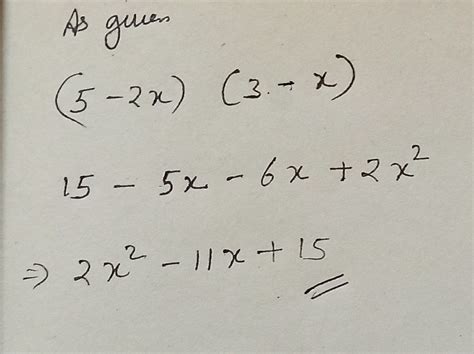 As given
(5-2x) (3-x)
15 - 5x - 6x + 2x²
⇒ 2x² - 11x + 15